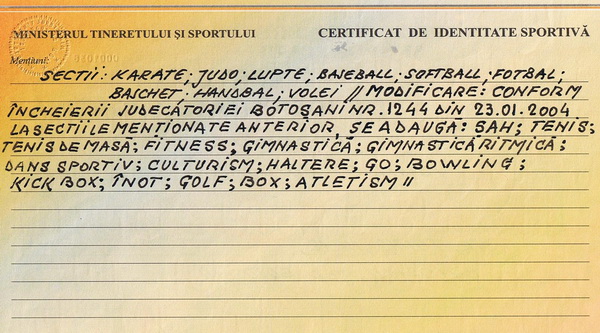 MINISTERUL TINERETULUI ŞI SPORTULUI CERTIFICAT DE IDENTITATE SPORTIVĂ
Menţiuni:
SECTII: KARATE; JUDO; LUPTE; BASEBALL; SOFTBALL; FOTBAL;
BASCHET; HANDBAL; VOLEI // MODIFICARE: CONFORM
ÎNCHEIERII JUDECĂTORIEI BOTOŞANI NR. 1244 DIN 23.01.2004
LA SECTIILE MENTIONATE ANTERIOR, SE ADAUGĂ: SAH; TENIS;
TENIS DE MASĂ; FITNESS; GIMNASTICĂ; GIMNASTICĂ RITMICĂ;
DANS SPORTIV; CULTURISM; HALTERE; GO; BOWLING;
KICK BOX; ÎNOT; GOLF; BOX; ATLETISM //